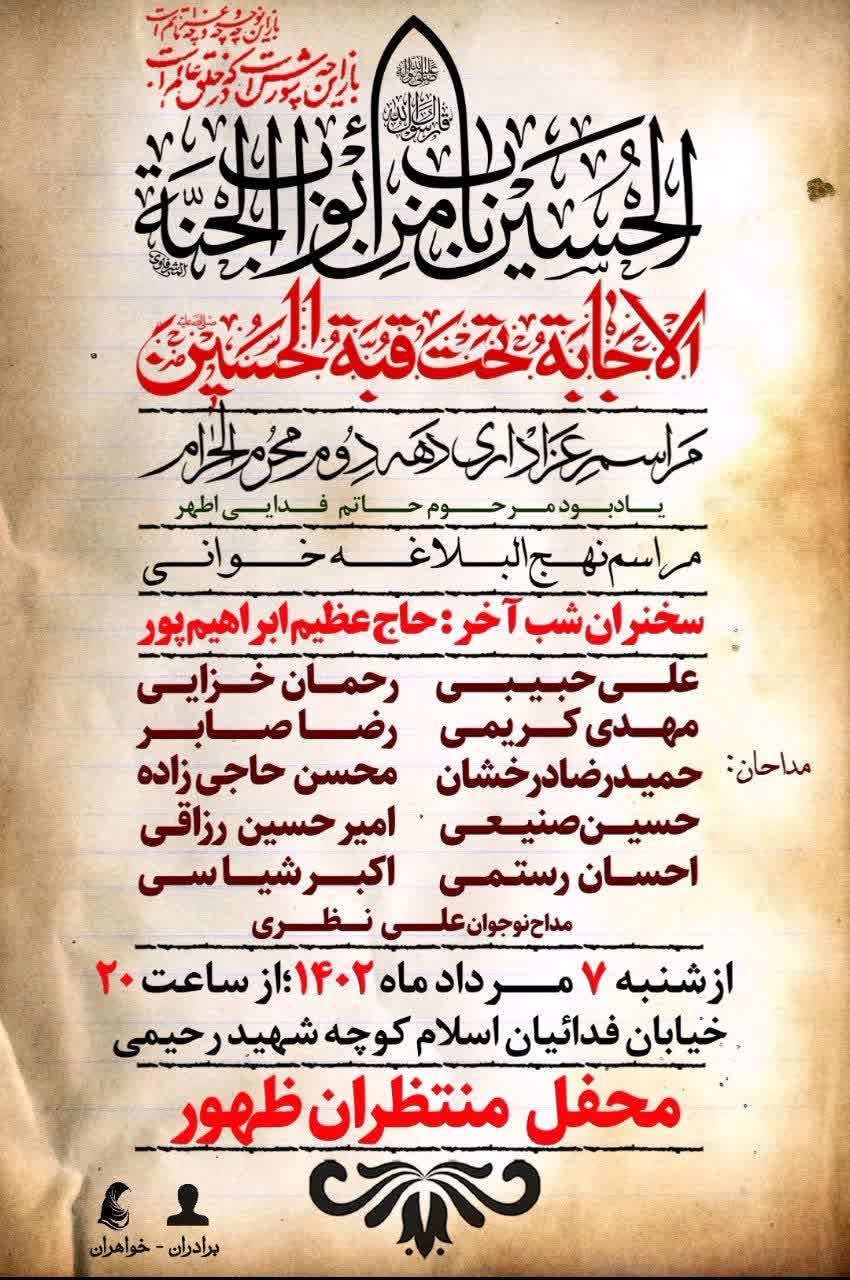 باز این چه شورش است که در خلق عالم است
باز این چه نوحه و چه عزا و چه ماتم است
قال رسول الله
صلی الله علیه و آله
الحُسَین باب مِن أبواب الجَنَّة
الاجابة تحت قبة الحسین
مراسم عزاداری دهه دوم محرم الحرام
یادبود مرحوم حاتم فدایی اطهر
مراسم نهج البلاغه خوانی
سخنران شب آخر: حاج عظیم ابراهیم پور
مداحان:
علی حبیبی رحمان خزایی
مهدی کریمی رضا صابر
حمیدرضا درخشان محسن حاجی زاده
حسین صنیعی امیرحسین رزاقی
احسان رستمی اکبر شیاسی
مداح نوجوان علی نظری
از شنبه ۷ مرداد ماه ۱۴۰۲؛ از ساعت ۲۰
خیابان فدائیان اسلام کوچه شهید رحیمی
محفل منتظران ظهور
برادران - خواهران